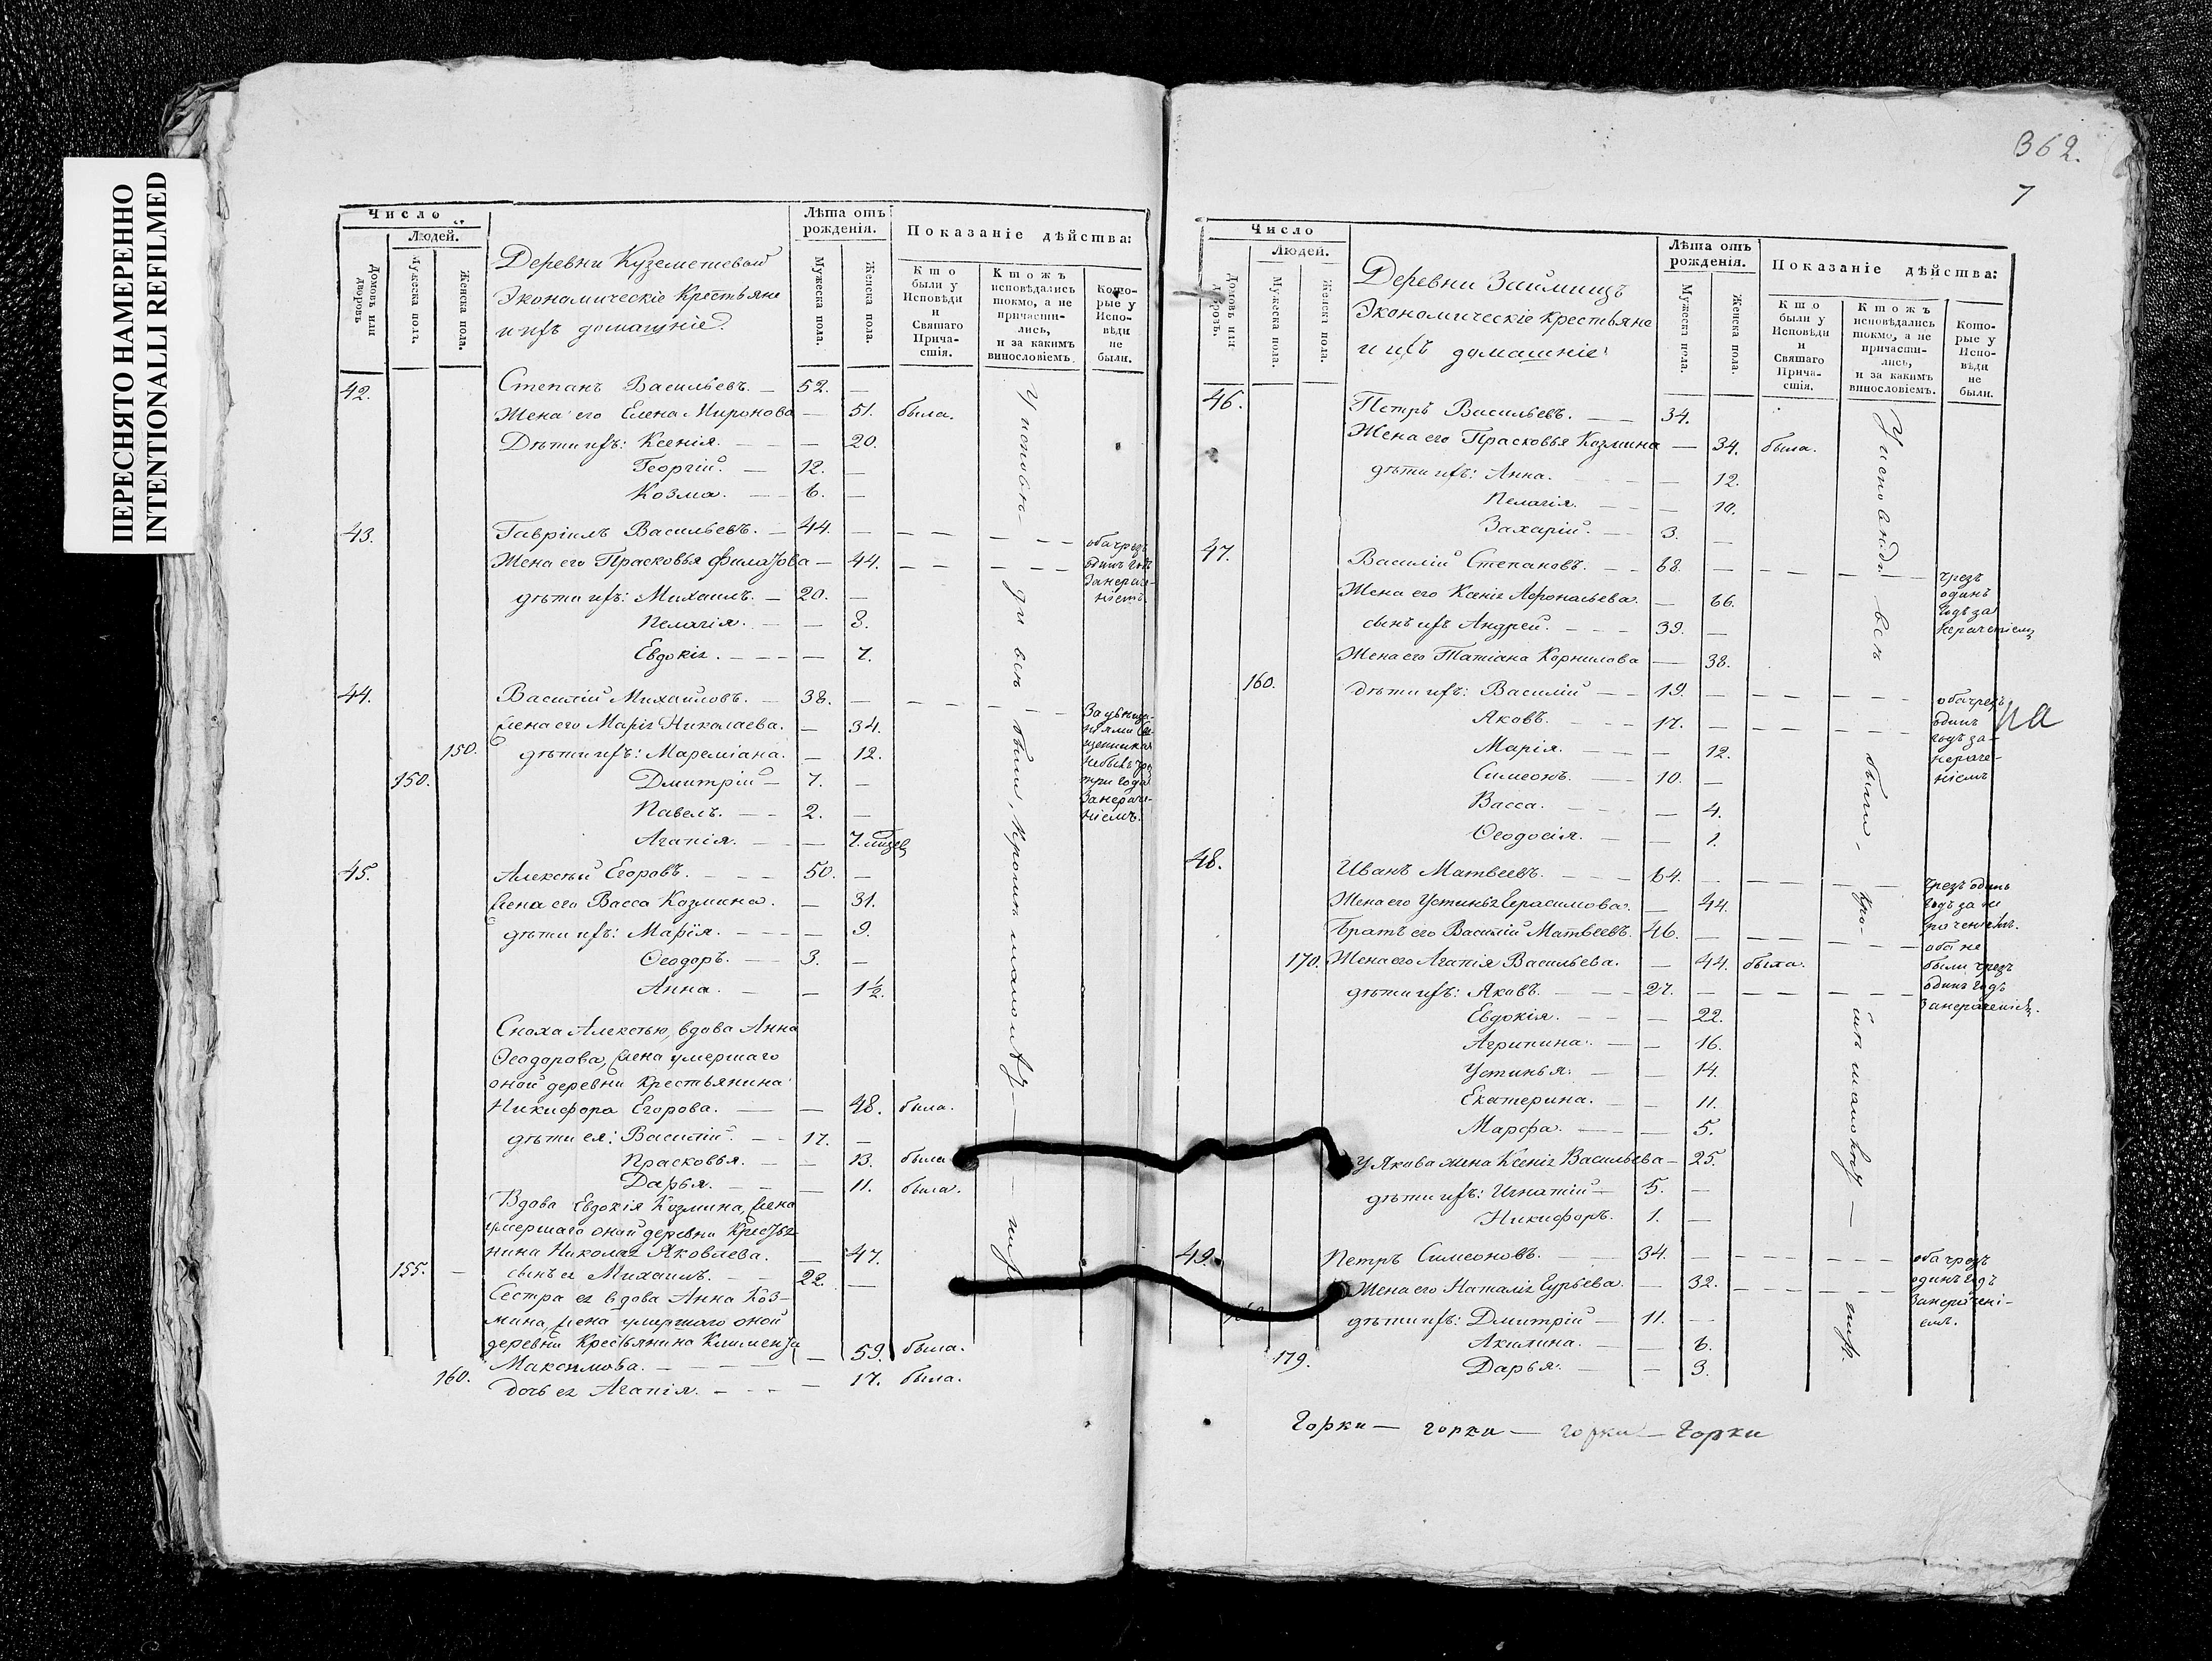 ПЕРЕСНЯТО НАМЕРЕННО
INTENTIONALLI REFILMED
Число
Людей.
Домовъ или дворовъ
Мужеска пола.
Женска пола.
Деревни
Экономическіе Крестьяне
и ихъ домашніе.
Лѣта отъ рожденія.
Мужеска пола.
Женска пола.
Показаніе дѣйства:
Кто были у Исповѣди и Святаго Причастія.
Ктожъ исповѣдались токмо, а не причастились, и за какимъ винословіемъ.
Которые у Исповѣди не были.
42. Степанъ Васильевъ. — 52. —
Жена его Елена Миронова — 51. была.
Дѣти ихъ: Ксенія. — — 20.
Георгій. — 12. —
Козма. — — 6. —
43. Гавріилъ Васильевъ. — 44. — — — — —
Жена его Прасковья — 44. — — — —
дѣти ихъ: Михаилъ. — 20. —
Пелагія. — — 8.
Евдокія. — — — — 7.
оба чрезъ
одинъ годъ
за нераче-
ніемъ.
44. Василій Михайловъ. — 38. — — — — —
жена его Марія Николаева. — 34.
150. дѣти ихъ: Мареміана. — 12.
150. Дмитрій — 7. —
Павелъ. — — 2. —
Агапія. — — — 7.
три года
за нераче-
ніемъ.
45. Алексѣй Егоровъ. — — — 50. —
жена его Васса Козмина. — — 31.
дѣти ихъ: Марія. — — — — 9.
Ѳеодоръ. — — 3. —
Анна. — — 1½.
Сноха Алексѣю, вдова Анна
Ѳеодорова, жена умершаго
оной деревни крестьянина
Никифора Егорова. — — 48. была.
дѣти ея: Василій. — — 17. —
Прасковья. — — 13. была
Дарья. — — — 11. была.
Вдова Евдокія Козмина, жена
умершаго оной деревни Крестья-
нина Николая Яковлева. — 47.
155. — сынъ ея Михаилъ. — — 22. —
Сестра ея вдова Анна Коз-
мина, жена умершаго оной
деревни Крестьянина Климента
Максимова. — — — — 59. была.
160. дочь ея Агапія. — — — — 17. была.
У исповѣ-
ди всѣ были, кромѣ малолѣт-
— нихъ
362.
7
Число
Людей.
Домовъ или дворовъ.
Мужеска пола.
Женска пола.
Деревни Займищъ
Экономическіе крестьяне
и ихъ домашніе
Лѣта отъ рожденія.
Мужеска пола.
Женска пола.
Показаніе дѣйства:
Кто были у Исповѣди и Святаго Причастія.
Ктожъ исповѣдались токмо, а не причастились, и за какимъ винословіемъ.
Которые у Исповѣди не были.
46. Петръ Васильевъ. — 34.
Жена его Прасковья Козмина — 34. была.
дѣти ихъ: Анна. — — 12.
Пелагія. — — — 10.
Захарій. — — 3. —
47. Василій Степановъ. — — 68. — — — — —
Жена его Ксенія Аѳонасьева. — 66.
сынъ ихъ Андрей. — — — 39. —
Жена его Татіана Корнилова — 38.
чрезъ
одинъ
годъ за
нераченіемъ
160. дѣти ихъ: Василій — — 19. — — — — —
Яковъ. — — 17. — — — — —
Марія. — — — 12.
Симеонъ. — — 10. —
Васса. — — — 4.
Ѳеодосія. — — 1.
оба чрезъ
одинъ
годъ за-
нераче-
ніемъ
48. Иванъ Матвеевъ. — — — 64. — — — — —
Жена его Устинья Герасимова. — 44.
Братъ его Василій Матвеевъ. 46. — — — — —
170. Жена его Агапія Васильева. — 44. была.
дѣти ихъ: Яковъ. — — — 27. — — — — —
Евдокія. — — — 22.
Агрипина. — — 16.
Устинья: — — 14.
Екатерина. — — 11.
Марѳа. — — — 5.
У Якова жена Ксенія Васильева — 25.
дѣти ихъ: Игнатій — 5. —
Никифоръ. 1. —
чрезъ одинъ
годъ за не
раченіемъ.
оба не
были чрезъ
одинъ годъ
за нераченіемъ.
49. Петръ Симеоновъ. — — 34. — — — — —
Жена его Наталія Гурьева. — 32. — — — — —
дѣти ихъ: Дмитрій — 11. —
Акилина. — — 6.
179. Дарья. — — 3.
оба чрезъ
одинъ годъ
за нерачені-
емъ.
У исповѣди всѣ были, кро-
мѣ малолѣт — нихъ.
на
Горки — горки — горки — Горки